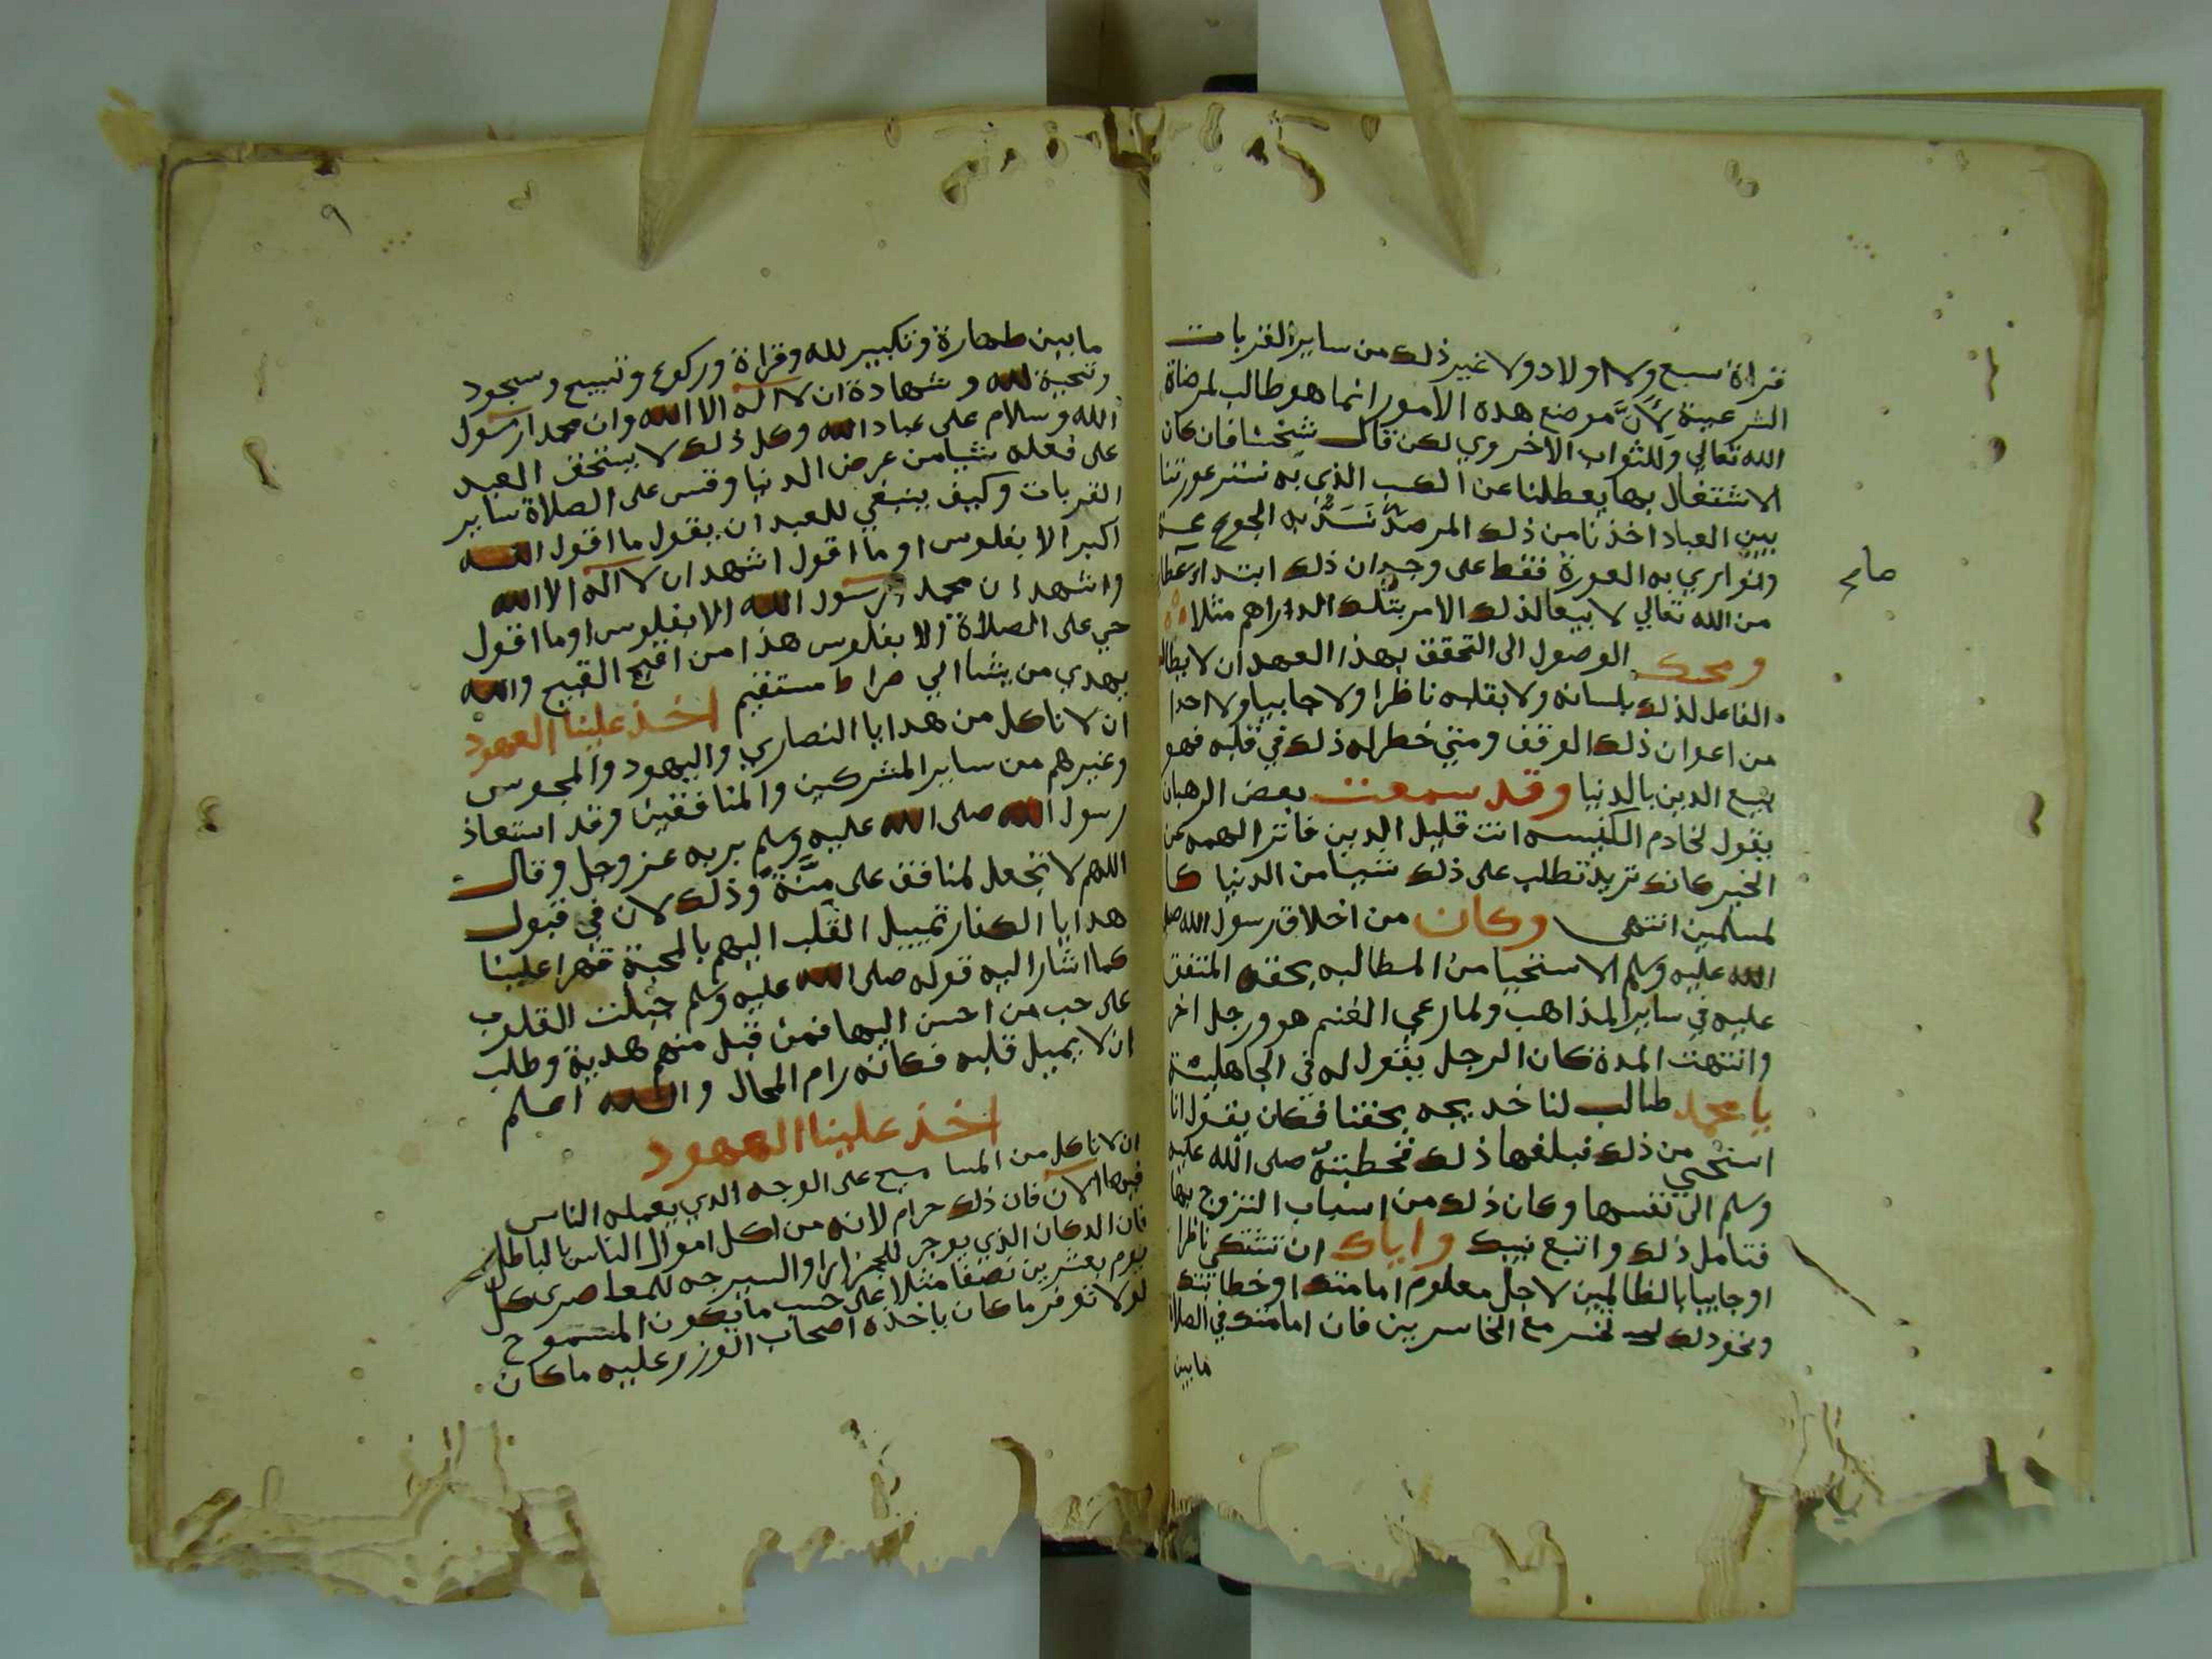 قراة سبع ولا اولاد ولا غير ذلك من ساير القربات
الشرعية لأنَّ موضع هذه الامور انما هو طالب لمرضاة
الله تعالي وللثواب الاخروي لكن قال شيخنا فان كان
الاشتغال بها يعطلنا عن الكسب الذي به نستر عورتنا
بين العباد اخذنا من ذلك المرصد نَسَدُّ به الجوع
ونواري به العورة فقط على وجه ان ذلك ابتداء عطا
من الله تعالي لا بيعا لذلك الامر بتلك الدراهم مثلا
ومحك الوصول الى التحقق بهذا العهد ان لا يطالب
الفاعل لذلك بلسانه ولا بقلبه ناظرا ولا جابيا ولا احدا
من اعوان ذلك الوقف ومتي خطر له ذلك في قلبه فهو
يبيع الدين بالدنيا وقد سمعت بعض الرهبان
يقول لخادم الكنيسه انت قليل الدين فاتر الهمه عن
الخير كانك تريد تطلب على ذلك شيا من الدنيا كا
لمسلمين انتهى وكان من اخلاق رسول الله صلى
الله عليه وسلم الاستحيا من المطالبه بحقه المتفق
عليه في ساير المذاهب ولما رعي الغنم هو ورجل اخر
وانتهت المدة كان الرجل يقول له في الجاهلية
يا محمد طالب لنا خديجه بحقنا فكان يقول انا
استحي من ذلك فبلغها ذلك فخطبته صلى الله عليه
وسلم الى نفسها وكان ذلك من اسباب التزوج بها
فتامل ذلك واتبع نبيك واياك ان تشتكي ناظرا
او جابيا بالظالمين لاجل معلوم امامتك او خطابتك
ونحو ذلك تخسر مع الخاسرين فان امامتك في الصلاة
مابين
صالح
٩
مابين طهارة وتكبير لله وقراة وركوع وتسبيح وسجود
وتحية لله وشهادة ان لا اله الا الله وان محمدا رسول
الله وسلام على عباد الله وكل ذلك لا يستحق العبد
على فعله شيا من عرض الدنيا وقس على الصلاة ساير
القربات وكيف ينبغي للعبد ان يقول ما اقول الله
اكبر الا بفلوس او ما اقول اشهد ان لا اله الا الله
واشهد ان محمدا رسول الله الا بفلوس او ما اقول
حي على الصلاة الا بفلوس هذا من اقبح القبيح والله
يهدي من يشا الي صراط مستقيم اخذ علينا العهود
ان لا ناكل من هدايا النصاري واليهود والمجوس
وغيرهم من ساير المشركين والمنافقين وقد استعاذ
رسول الله صلى الله عليه وسلم بربه عز وجل وقال
اللهم لا تجعل لمنافق على مِنَّة وذلك لان في قبول
هدايا الكفار تمييل القلب اليهم بالمحبة قهرا علينا
كما اشار اليه قوله صلى الله عليه وسلم جبلت القلوب
على حب من احسن اليها فمن قبل منهم هدية وطلب
ان لا يميل قلبه فكانه رام المحال والله اعلم
اخذ علينا العهود
ان لا ناكل من المسا ميح على الوجه الذي يعمله الناس
فيها الان فان ذلك حرام لانه من اكل اموال الناس بالباطل
فان الدكان الذي يوجر للجزارا والسيرجه للمعاصرى كل
يوم بعشرين نصفا مثلا على حسب ما يكون المسموح
لولا توفر ما كان ياخذه اصحاب الغرز عليه ما كان